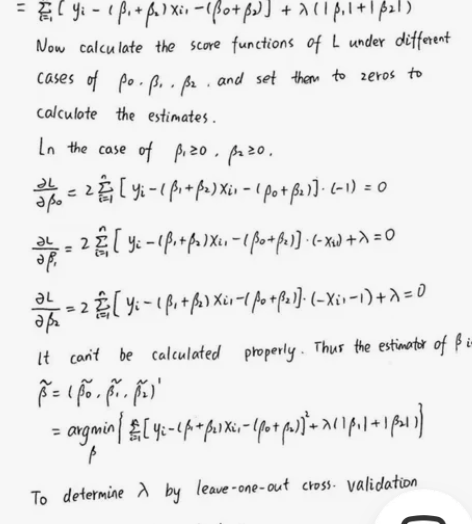 = Σ_{i=1}^{n} [ yi - (β₁+β₂)Xi₁ - (β₀+β₂)] + λ(|β₁|+|β₂|)
Now calculate the score functions of L under different
cases of β₀, β₁, β₂, and set them to zeros to
calculate the estimates.
In the case of β₁≥0, β₂≥0.
∂L/∂β₀ = 2 Σ_{i=1}^{n} [ yi - (β₁+β₂)Xi₁ - (β₀+β₂)]·(-1) = 0
∂L/∂β₁ = 2 Σ_{i=1}^{n} [ yi - (β₁+β₂)Xi₁ - (β₀+β₂)]·(-Xi₁) + λ = 0
∂L/∂β₂ = 2 Σ_{i=1}^{n} [ yi - (β₁+β₂)Xi₁ - (β₀+β₂)]·(-Xi₁-1) + λ = 0
It can't be calculated properly. Thus the estimator of β i
β̃ = (β̃₀, β̃₁, β̃₂)'
= argmin_β { Σ_{i=1}^{n} [yi-(β₁+β₂)Xi₁-(β₀+β₂)]² + λ(|β₁|+|β₂|) }
To determine λ by leave-one-out cross-validation